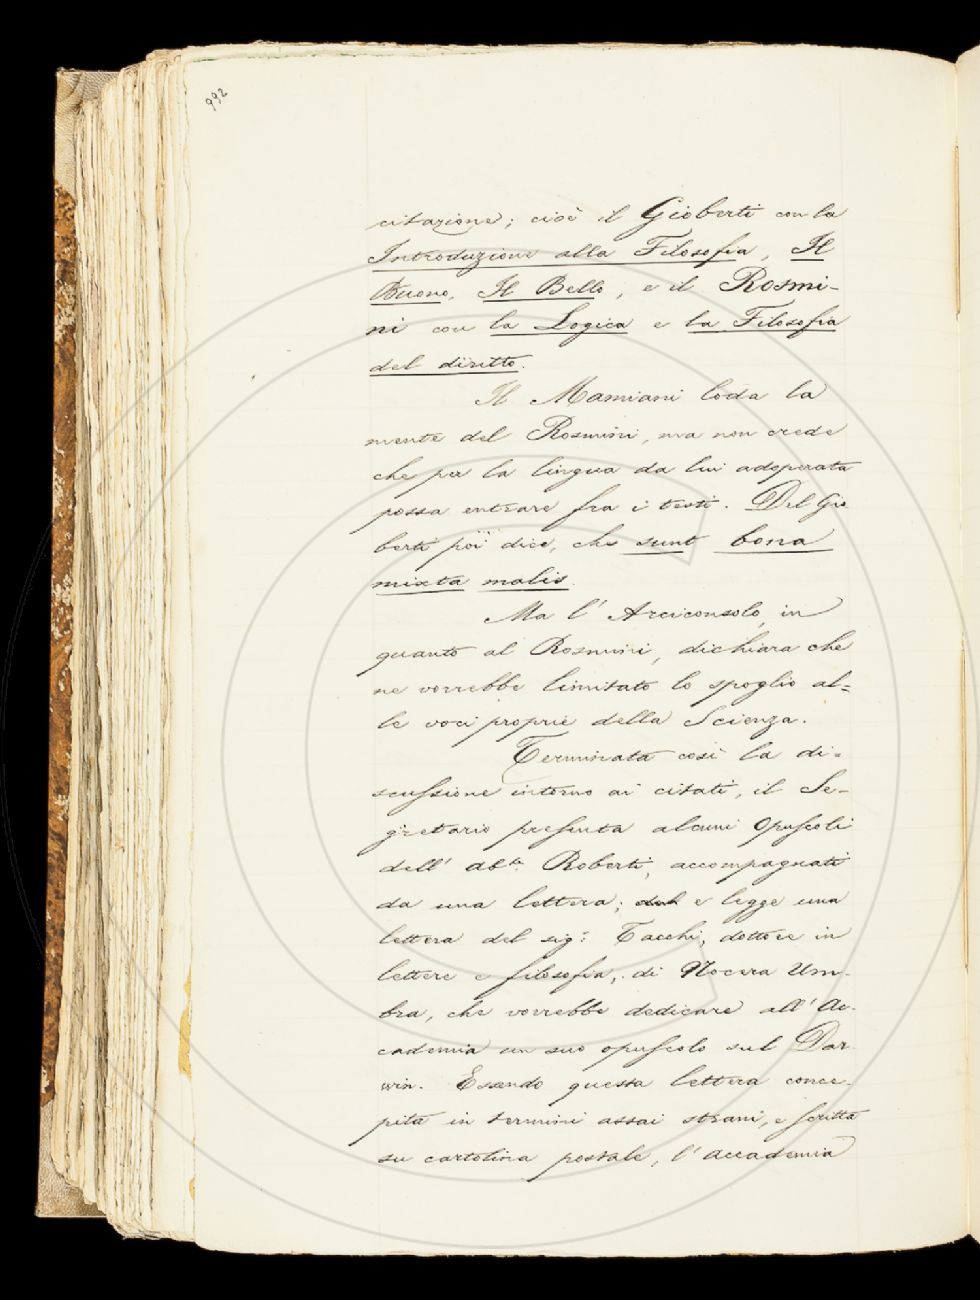 992
citazione; cioè il Gioberti con la
Introduzione alla Filosofia, Il
Buono, Il Bello, e il Rosmi-
ni con la Logica e la Filosofia
del diritto.
Il Mamiani loda la
mente del Rosmini, ma non crede
che per la lingua da lui adoperata
possa entrare fra i testi. Del Gio
berti poi dice, che sunt bona
mixta malis.
Ma l'Arciconsolo, in
quanto al Rosmini, dichiara che
ne vorrebbe limitato lo spoglio al=
le voci proprie della Scienza.
Terminata così la di=
scussione intorno ai citati, il Se-
gretario presenta alcuni Opuscoli
dell' ab.te Roberti, accompagnati
da una lettera; e legge una
lettera del sig.r Tacchi, dottore in
lettere e filosofia, di Nocera Um-
bra, che vorrebbe dedicare all'Ac-
cademia un suo opuscolo sul Dar
win. Essendo questa lettera conce-
pita in termini assai strani, e scritta
su cartolina postale, l'accademia